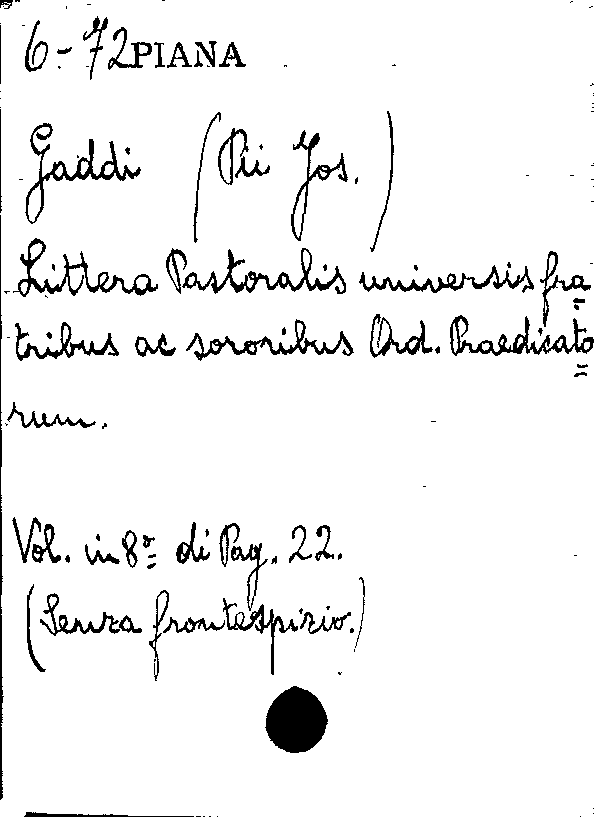 6-72 PIANA
Gaddi (Pii Jos.)
Littera Pastoralis universis fra=
tribus ac sororibus Ord. Praedicato=
rum.
Vol. in 8º di Pag. 22.
(Senza frontespizio.)